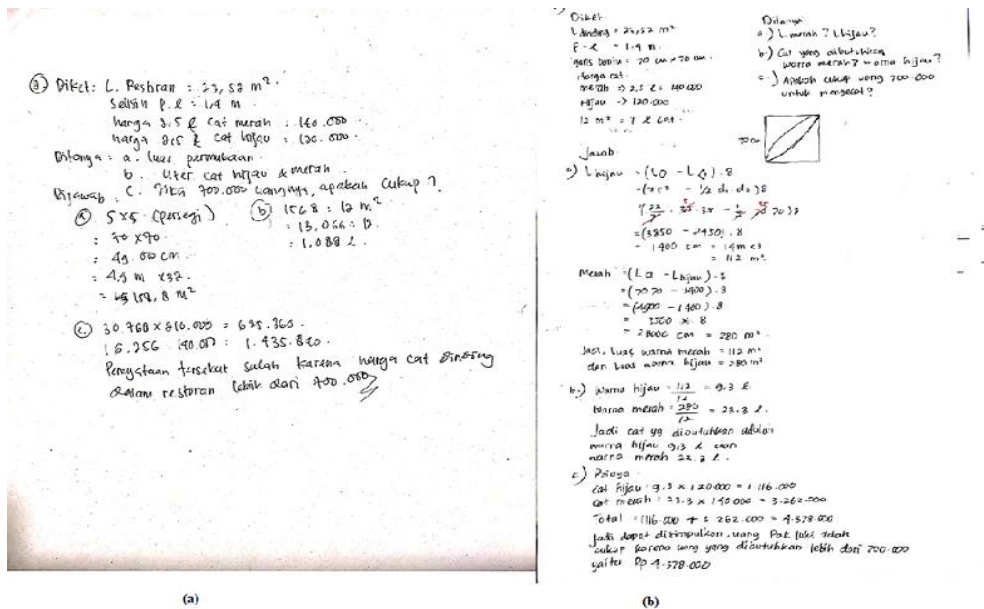 Diket: L. Restoran : 23,52 m².
Selisih p.l : 1,4 m
harga 2.5 l cat merah : 140.000
harga 2,5 l cat hijau : 120.000.
Ditanya : a. luas permukaan
b. liter cat hijau & merah.
c. Jika 700.000 uangnya, apakah cukup?
Dijawab :
(a) 5x5 (persegi)
: 70 x 70.
: 49.00 cm
: 4.9 m x 32.
= 158,8 m²
(b) 156.8 : 12 m²
: 13,066 : 12.
: 1,088 l.
(c.) 30.760 x 210.000 = 635.360.
140.000 : 1.435.840.
Pernyataan tersebut salah karena harga cat dinding
dalam restoran lebih dari 700.000
(a)
Diket
L dinding = 23,52 m²
P - l = 1,4 m.
garis bantu = 70 cm x 70 cm.
Harga cat.
merah => 2,5 l = 140.000
Hijau -> 120.000
12 m² = 1 l cat.
Ditanya
a.) L merah? L hijau?
b.) Cat yang dibutuhkan
warna merah? warna hijau?
c.) Apakah cukup uang 700.000
untuk mengecat?
70 cm
Jawab
a) L hijau = (LO - L△) . 8
- ½ d₁ . d₂) 8
= (3850 - 2450) . 8
= 1400 cm = 14 m
= 112 m²
Merah = (L□ - L hijau) . 8
= (70 70 - 1400) . 8
= (4900 - 1400) . 8
= 3500 x 8
= 28000 cm = 280 m²
Jadi, Luas warna merah = 112 m²
dan Luas warna hijau = 280 m²
b.) Warna hijau = 112/12 = 9.3 l
Warna merah = 280/12 = 23.3 l.
Jadi cat yg dibutuhkan adalah
warna hijau 9.3 l dan
warna merah 23.3 l.
c) Biaya
Cat hijau : 9.3 x 120.000 = 1.116.000
Cat merah : 23.3 x 140.000 = 3.262.000
Total : 1116.000 + 3.262.000 = 4.378.000
Jadi dapat disimpulkan, uang Pak tidak
cukup karena uang yang dibutuhkan lebih dari 700.000
yaitu Rp 4.378.000
(b)